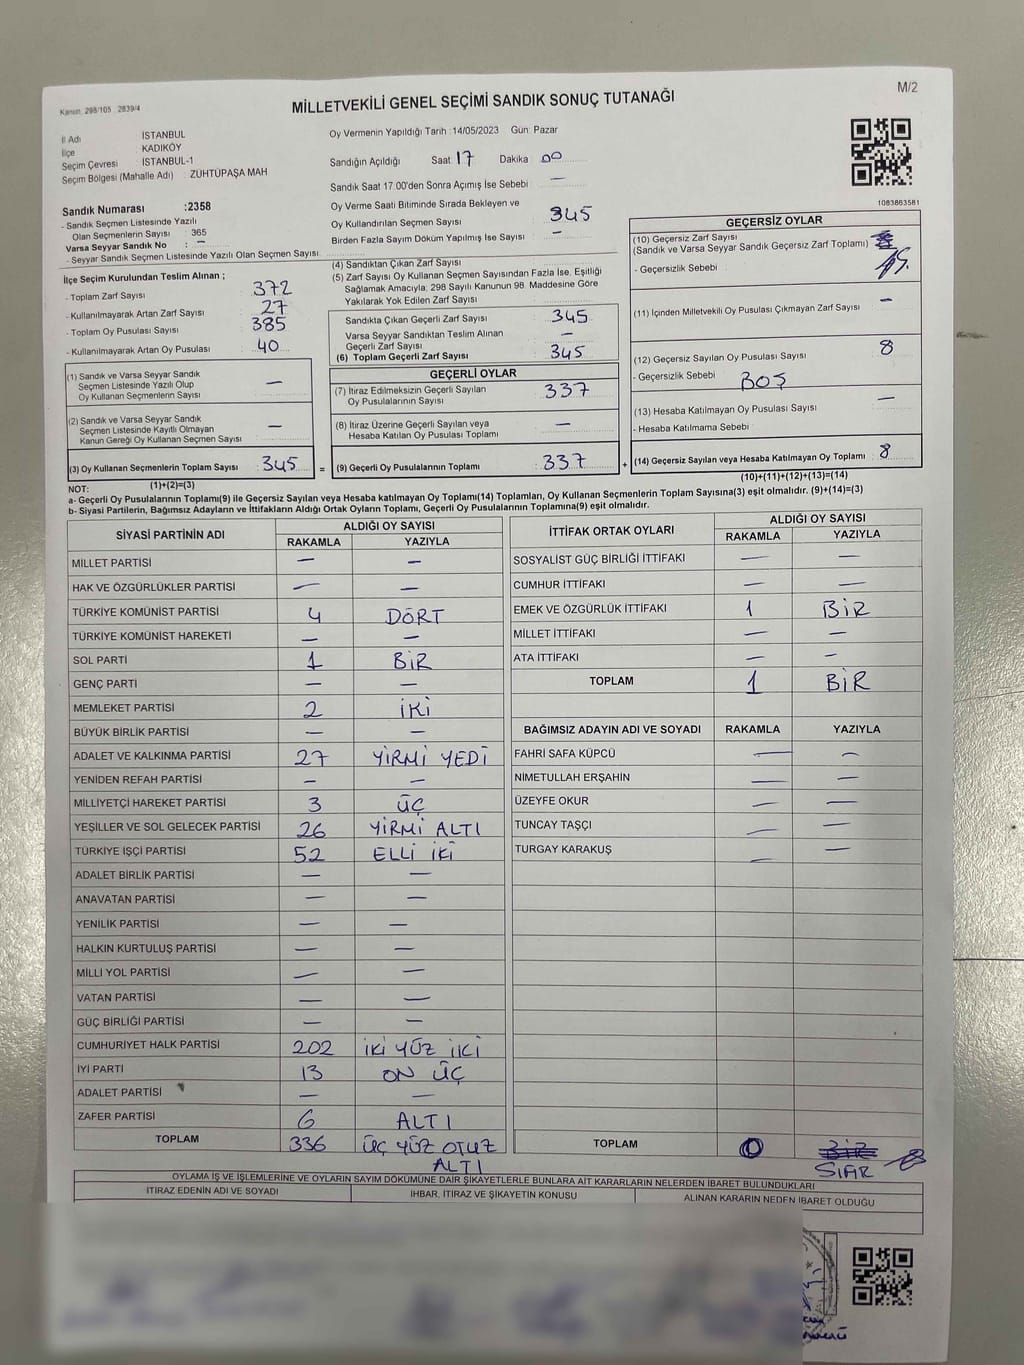 Kanun: 298/105 2839/4
M/2
MİLLETVEKİLİ GENEL SEÇİMİ SANDIK SONUÇ TUTANAĞI
İl Adı İSTANBUL
İlçe KADIKÖY
Seçim Çevresi İSTANBUL-1
Seçim Bölgesi (Mahalle Adı) : ZÜHTÜPAŞA MAH
Sandık Numarası :2358
- Sandık Seçmen Listesinde Yazılı
Olan Seçmenlerin Sayısı : 365
Varsa Seyyar Sandık No : —
- Seyyar Sandık Seçmen Listesinde Yazılı Olan Seçmen Sayısı
Oy Vermenin Yapıldığı Tarih :14/05/2023 Gün: Pazar
Sandığın Açıldığı Saat 17 Dakika 00
Sandık Saat 17.00'den Sonra Açımış İse Sebebi —
Oy Verme Saati Bitiminde Sırada Bekleyen ve
Oy Kullandırılan Seçmen Sayısı 345
Birden Fazla Sayım Döküm Yapılmış İse Sayısı —
1083863581
İlçe Seçim Kurulundan Teslim Alınan ;
- Toplam Zarf Sayısı 372
- Kullanılmayarak Artan Zarf Sayısı 27
- Toplam Oy Pusulası Sayısı 385
- Kullanılmayarak Artan Oy Pusulası 40
(1) Sandık ve Varsa Seyyar Sandık
Seçmen Listesinde Yazılı Olup
Oy Kullanan Seçmenlerin Sayısı —
(2) Sandık ve Varsa Seyyar Sandık
Seçmen Listesinde Kayıtlı Olmayan
Kanun Gereği Oy Kullanan Seçmen Sayısı —
(3) Oy Kullanan Seçmenlerin Toplam Sayısı 345 =
(1)+(2)=(3)
(4) Sandıktan Çıkan Zarf Sayısı
(5) Zarf Sayısı Oy Kullanan Seçmen Sayısından Fazla İse, Eşitliği
Sağlamak Amacıyla; 298 Sayılı Kanunun 98. Maddesine Göre
Yakılarak Yok Edilen Zarf Sayısı
Sandıkta Çıkan Geçerli Zarf Sayısı 345
Varsa Seyyar Sandıktan Teslim Alınan
Geçerli Zarf Sayısı —
(6) Toplam Geçerli Zarf Sayısı 345
GEÇERLİ OYLAR
(7) İtiraz Edilmeksizin Geçerli Sayılan
Oy Pusulalarının Sayısı 337
(8) İtiraz Üzerine Geçerli Sayılan veya
Hesaba Katılan Oy Pusulası Toplamı —
(9) Geçerli Oy Pusulalarının Toplamı 337 +
GEÇERSİZ OYLAR
(10) Geçersiz Zarf Sayısı
(Sandık ve Varsa Seyyar Sandık Geçersiz Zarf Toplamı)
- Geçersizlik Sebebi
(11) İçinden Milletvekili Oy Pusulası Çıkmayan Zarf Sayısı —
(12) Geçersiz Sayılan Oy Pusulası Sayısı 8
- Geçersizlik Sebebi BOŞ
(13) Hesaba Katılmayan Oy Pusulası Sayısı —
- Hesaba Katılmama Sebebi
(14) Geçersiz Sayılan veya Hesaba Katılmayan Oy Toplamı 8
(10)+(11)+(12)+(13)=(14)
NOT:
a- Geçerli Oy Pusulalarının Toplamı(9) ile Geçersiz Sayılan veya Hesaba katılmayan Oy Toplamı(14) Toplamları, Oy Kullanan Seçmenlerin Toplam Sayısına(3) eşit olmalıdır. (9)+(14)=(3)
b- Siyasi Partilerin, Bağımsız Adayların ve İttifakların Aldığı Ortak Oyların Toplamı, Geçerli Oy Pusulalarının Toplamına(9) eşit olmalıdır.
SİYASİ PARTİNİN ADI ALDIĞI OY SAYISI
RAKAMLA YAZIYLA
MİLLET PARTİSİ — —
HAK VE ÖZGÜRLÜKLER PARTİSİ — —
TÜRKİYE KOMÜNİST PARTİSİ 4 DÖRT
TÜRKİYE KOMÜNİST HAREKETİ — —
SOL PARTİ 1 BİR
GENÇ PARTİ — —
MEMLEKET PARTİSİ 2 İKİ
BÜYÜK BİRLİK PARTİSİ — —
ADALET VE KALKINMA PARTİSİ 27 YİRMİ YEDİ
YENİDEN REFAH PARTİSİ — —
MİLLİYETÇİ HAREKET PARTİSİ 3 ÜÇ
YEŞİLLER VE SOL GELECEK PARTİSİ 26 YİRMİ ALTI
TÜRKİYE İŞÇİ PARTİSİ 52 ELLİ İKİ
ADALET BİRLİK PARTİSİ — —
ANAVATAN PARTİSİ — —
YENİLİK PARTİSİ — —
HALKIN KURTULUŞ PARTİSİ — —
MİLLİ YOL PARTİSİ — —
VATAN PARTİSİ — —
GÜÇ BİRLİĞİ PARTİSİ — —
CUMHURİYET HALK PARTİSİ 202 İKİ YÜZ İKİ
İYİ PARTİ 13 ON ÜÇ
ADALET PARTİSİ — —
ZAFER PARTİSİ 6 ALTI
TOPLAM 336 ÜÇ YÜZ OTUZ
ALTI
İTTİFAK ORTAK OYLARI ALDIĞI OY SAYISI
RAKAMLA YAZIYLA
SOSYALİST GÜÇ BİRLİĞİ İTTİFAKI — —
CUMHUR İTTİFAKI — —
EMEK VE ÖZGÜRLÜK İTTİFAKI 1 BİR
MİLLET İTTİFAKI — —
ATA İTTİFAKI — —
TOPLAM 1 BİR
BAĞIMSIZ ADAYIN ADI VE SOYADI RAKAMLA YAZIYLA
FAHRİ SAFA KÜPCÜ — —
NİMETULLAH ERŞAHİN — —
ÜZEYFE OKUR — —
TUNCAY TAŞÇI — —
TURGAY KARAKUŞ — —
TOPLAM 0 BİR
SIFIR
OYLAMA İŞ VE İŞLEMLERİNE VE OYLARIN SAYIM DÖKÜMÜNE DAİR ŞİKAYETLERLE BUNLARA AİT KARARLARIN NELERDEN İBARET BULUNDUKLARI
İTİRAZ EDENİN ADI VE SOYADI İHBAR, İTİRAZ VE ŞİKAYETİN KONUSU ALINAN KARARIN NEDEN İBARET OLDUĞU